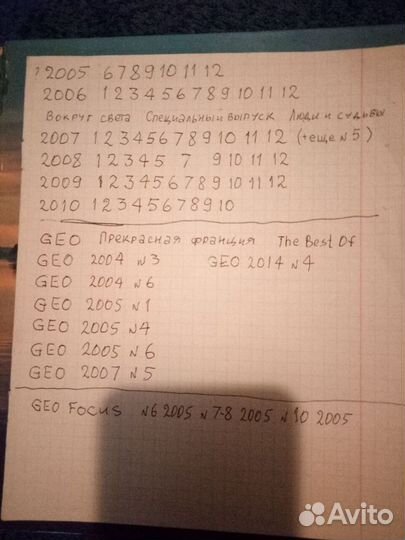 2005 6 7 8 9 10 11 12
2006 1 2 3 4 5 6 7 8 9 10 11 12
Вокруг света Специальный выпуск Люди и судьбы
2007 1 2 3 4 5 6 7 8 9 10 11 12 (+еще N5)
2008 1 2 3 4 5 7 9 10 11 12
2009 1 2 3 4 5 6 7 8 9 10 11 12
2010 1 2 3 4 5 6 7 8 9 10
GEO Прекрасная франция The Best Of
GEO 2004 N3 GEO 2014 N4
GEO 2004 N6
GEO 2005 N1
GEO 2005 N4
GEO 2005 N6
GEO 2007 N5
GEO FOCUS N6 2005 N7-8 2005 N10 2005
Avito